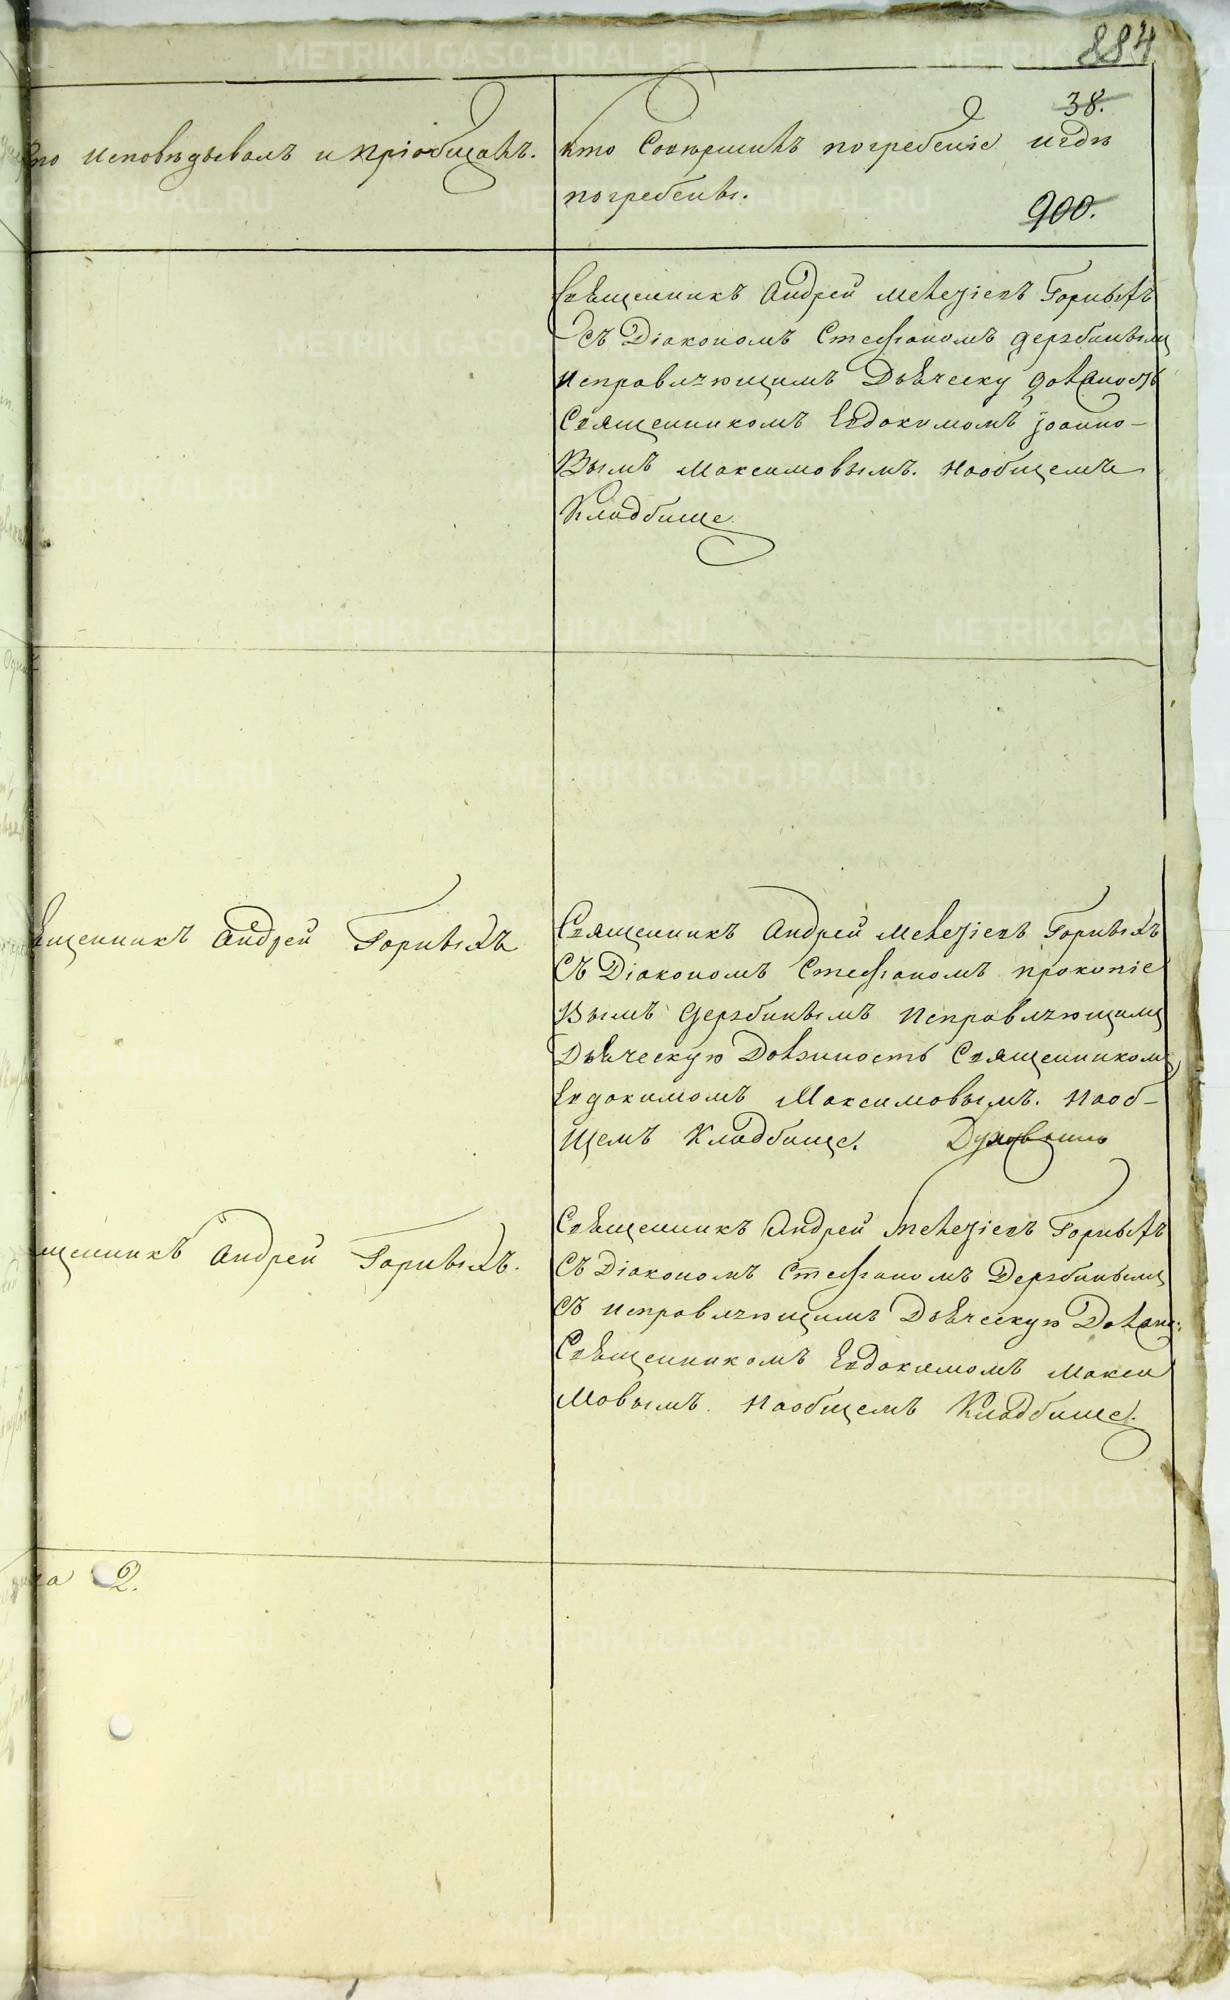 884
38.
кто исповѣдывалъ и пріобщалъ.
кто совершилъ погребеніе и гдѣ
погребены.
900.
Священникъ Андрей Горныхъ
съ Діакономъ Стефаномъ Дерябинымъ
исправляющимъ Дьяческу должность
Священникомъ Евдокимомъ Іоанно-
вымъ Максимовымъ. На общемъ
Кладбище.
щенникъ Андрей Горныхъ
Священникъ Андрей Горныхъ
съ Діакономъ Стефаномъ Прокопіе
вымъ Дерябинымъ исправляющимъ
Дьяческую Должность Священникомъ
Евдокимомъ Максимовымъ. На об-
щемъ Кладбище.
щенникъ Андрей Горныхъ.
Священникъ Андрей Горныхъ
съ Діакономъ Стефаномъ Дерябинымъ
съ исправляющимъ Дьяческую
Священникомъ Евдокимомъ Макси
мовымъ. На общемъ Кладбище.
2.
METRIKI.GASO-URAL.RU